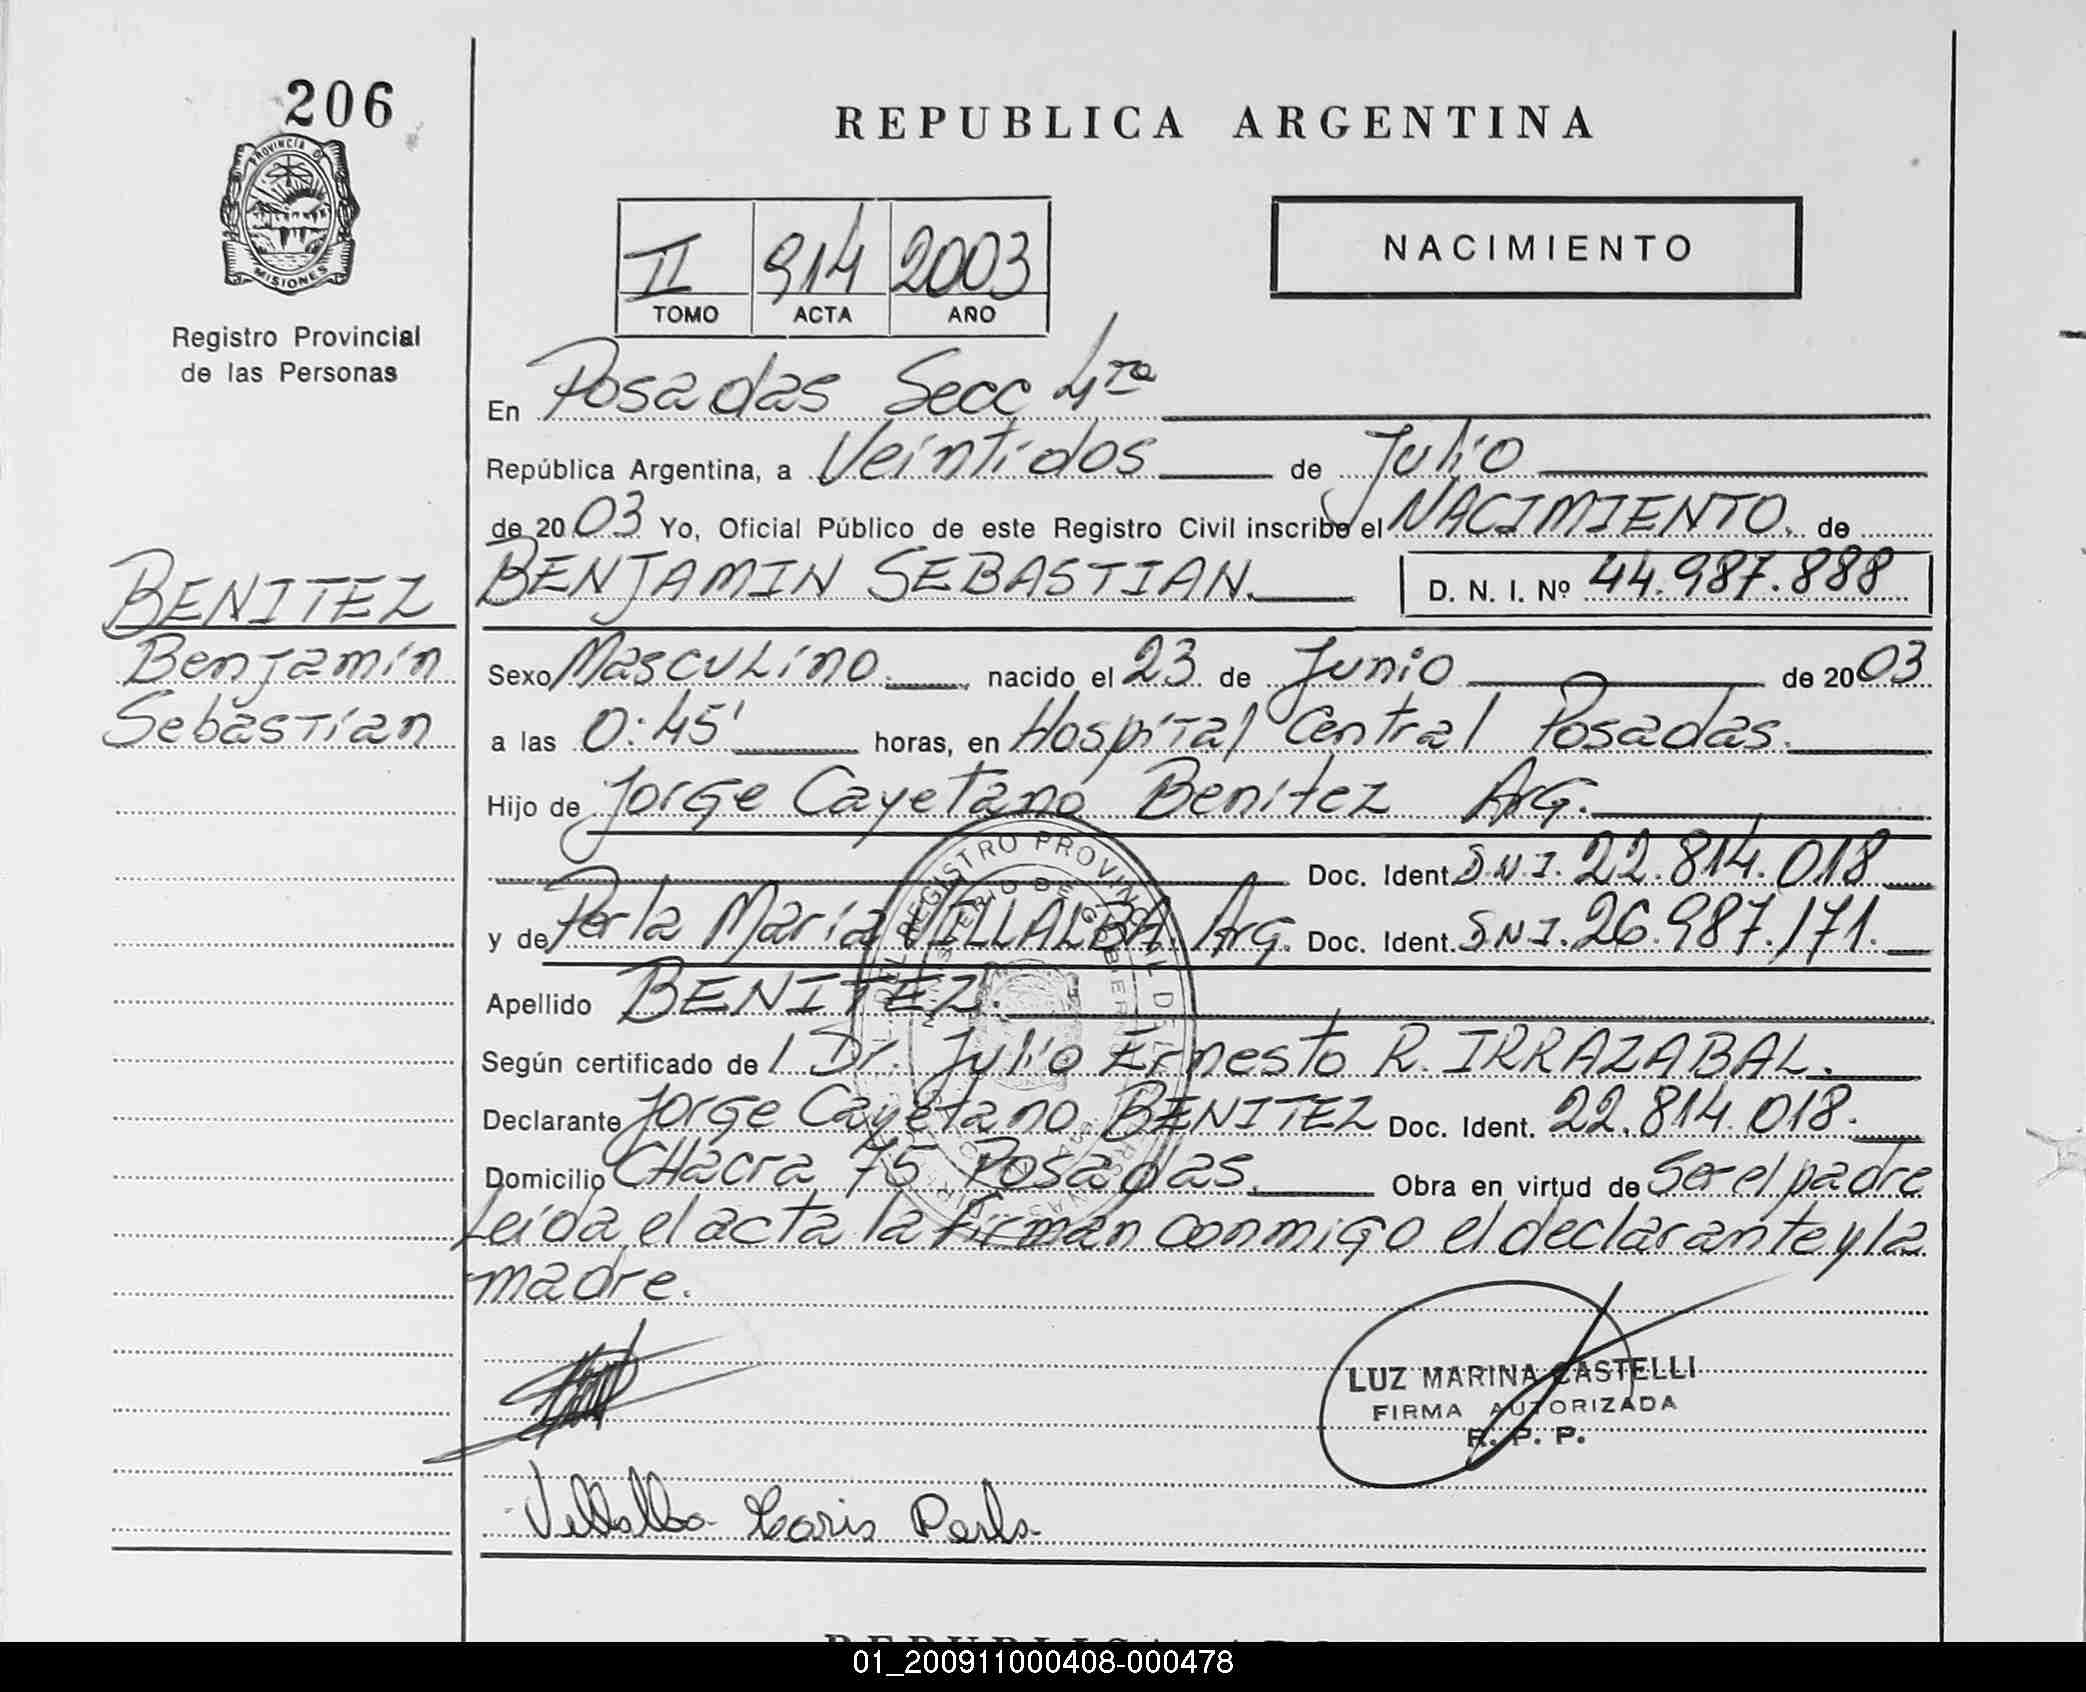 206
PROVINCIA D
MISIONES
Registro Provincial
de las Personas
BENITEZ
Benjamin
Sebastian
REPUBLICA ARGENTINA
II 914 2003
TOMO ACTA AÑO
NACIMIENTO
En Posadas Secc 4ta
República Argentina, a Veintidos de Julio
de 2003 Yo, Oficial Público de este Registro Civil inscribo el NACIMIENTO. de
BENJAMIN SEBASTIAN. D. N. I. Nº 44.987.888
Sexo Masculino. nacido el 23 de Junio de 2003
a las 0:45' horas, en Hospital Central Posadas.
Hijo de Jorge Cayetano Benitez Arg.
Doc. Ident. D.N.I. 22.814.018
y de Perla Maria VILLALBA. Arg. Doc. Ident. D.N.I. 26.987.171.
Apellido BENITEZ.
Según certificado de l Dr. Julio Ernesto R. IRRAZABAL.
Declarante Jorge Cayetano BENITEZ Doc. Ident. 22.814.018.
Domicilio CHacra 75 Posadas. Obra en virtud de Ser el padre
Leida el acta la firman conmigo el declarante y la
madre.
REGISTRO PROVINCIAL DE L
LUZ MARINA CASTELLI
FIRMA AUTORIZADA
R. P. P.
Villalba Perla
01_200911000408-000478